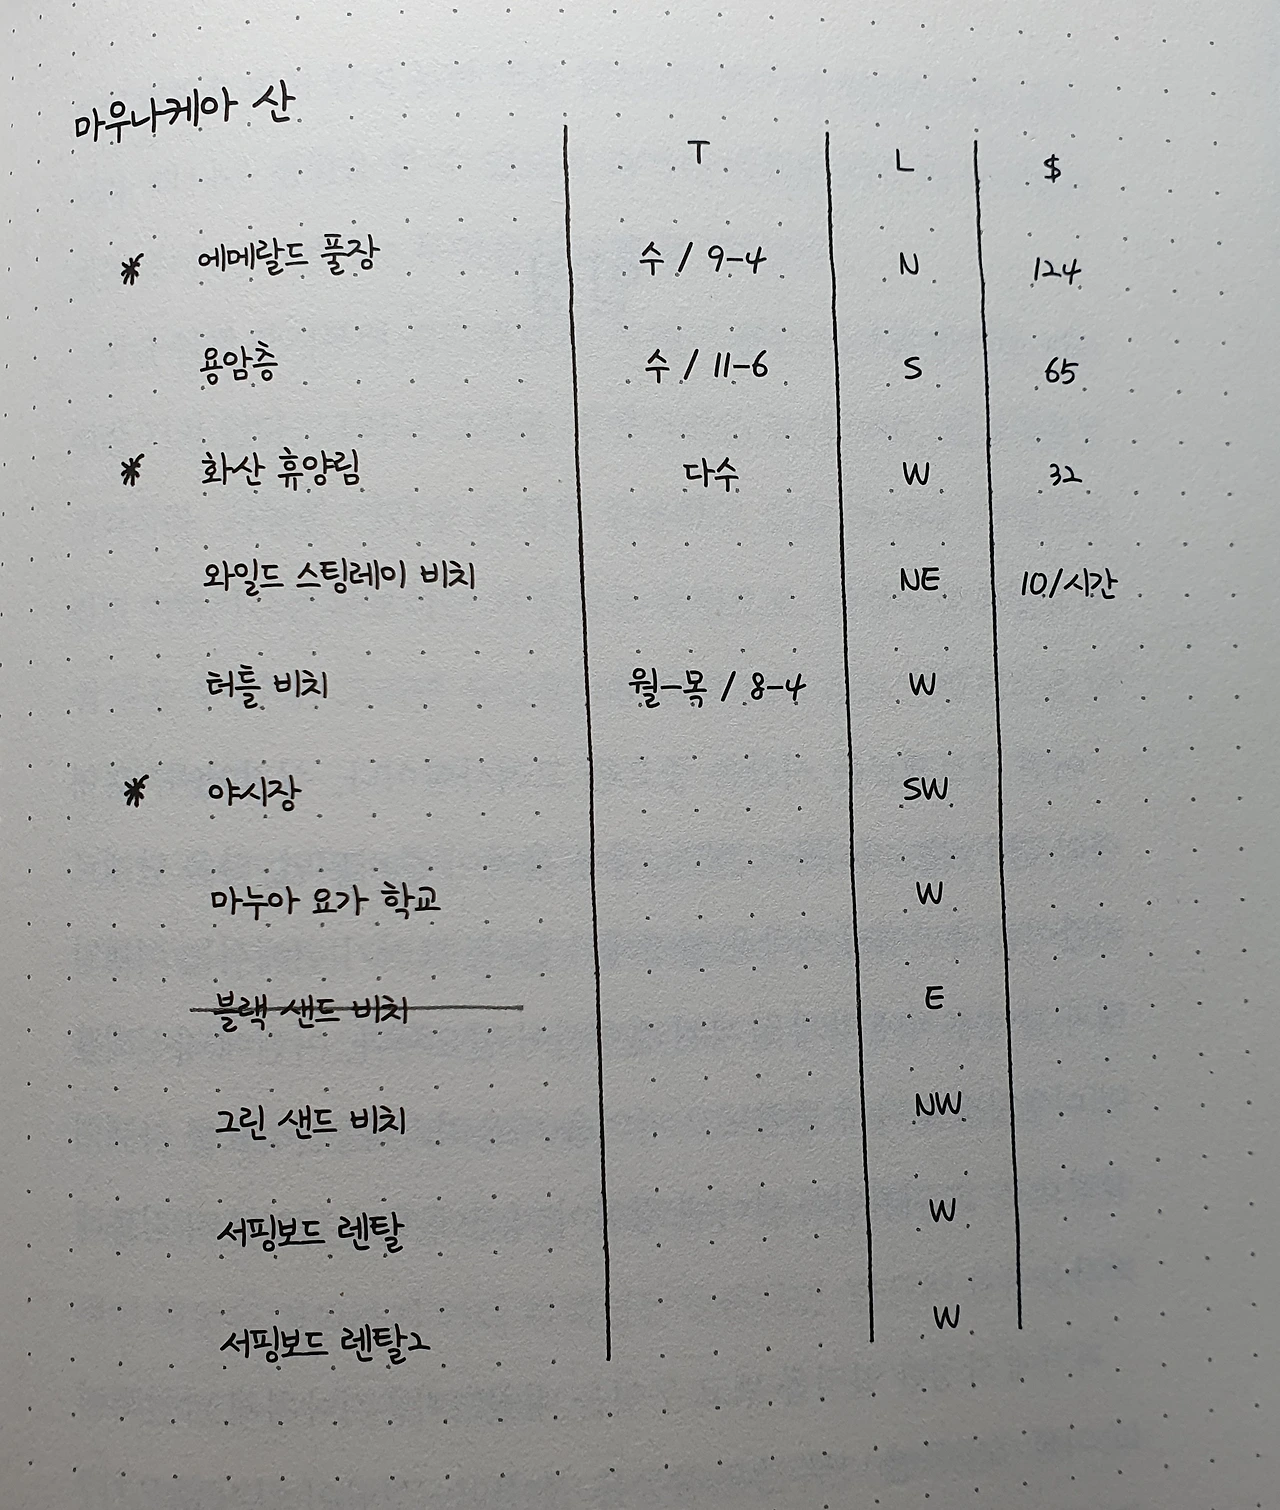 마우나케아 산
T L $
* 에메랄드 풀장 수 / 9-4 N 124
용암층 수 / 11-6 S 65
* 화산 휴양림 다수 W 32
와일드 스팅레이 비치 NE 10/시간
터틀 비치 월-목 / 8-4 W
* 야시장 SW
마누아 요가 학교 W
블랙 샌드 비치 E
그린 샌드 비치 NW
서핑보드 렌탈 W
서핑보드 렌탈2 W